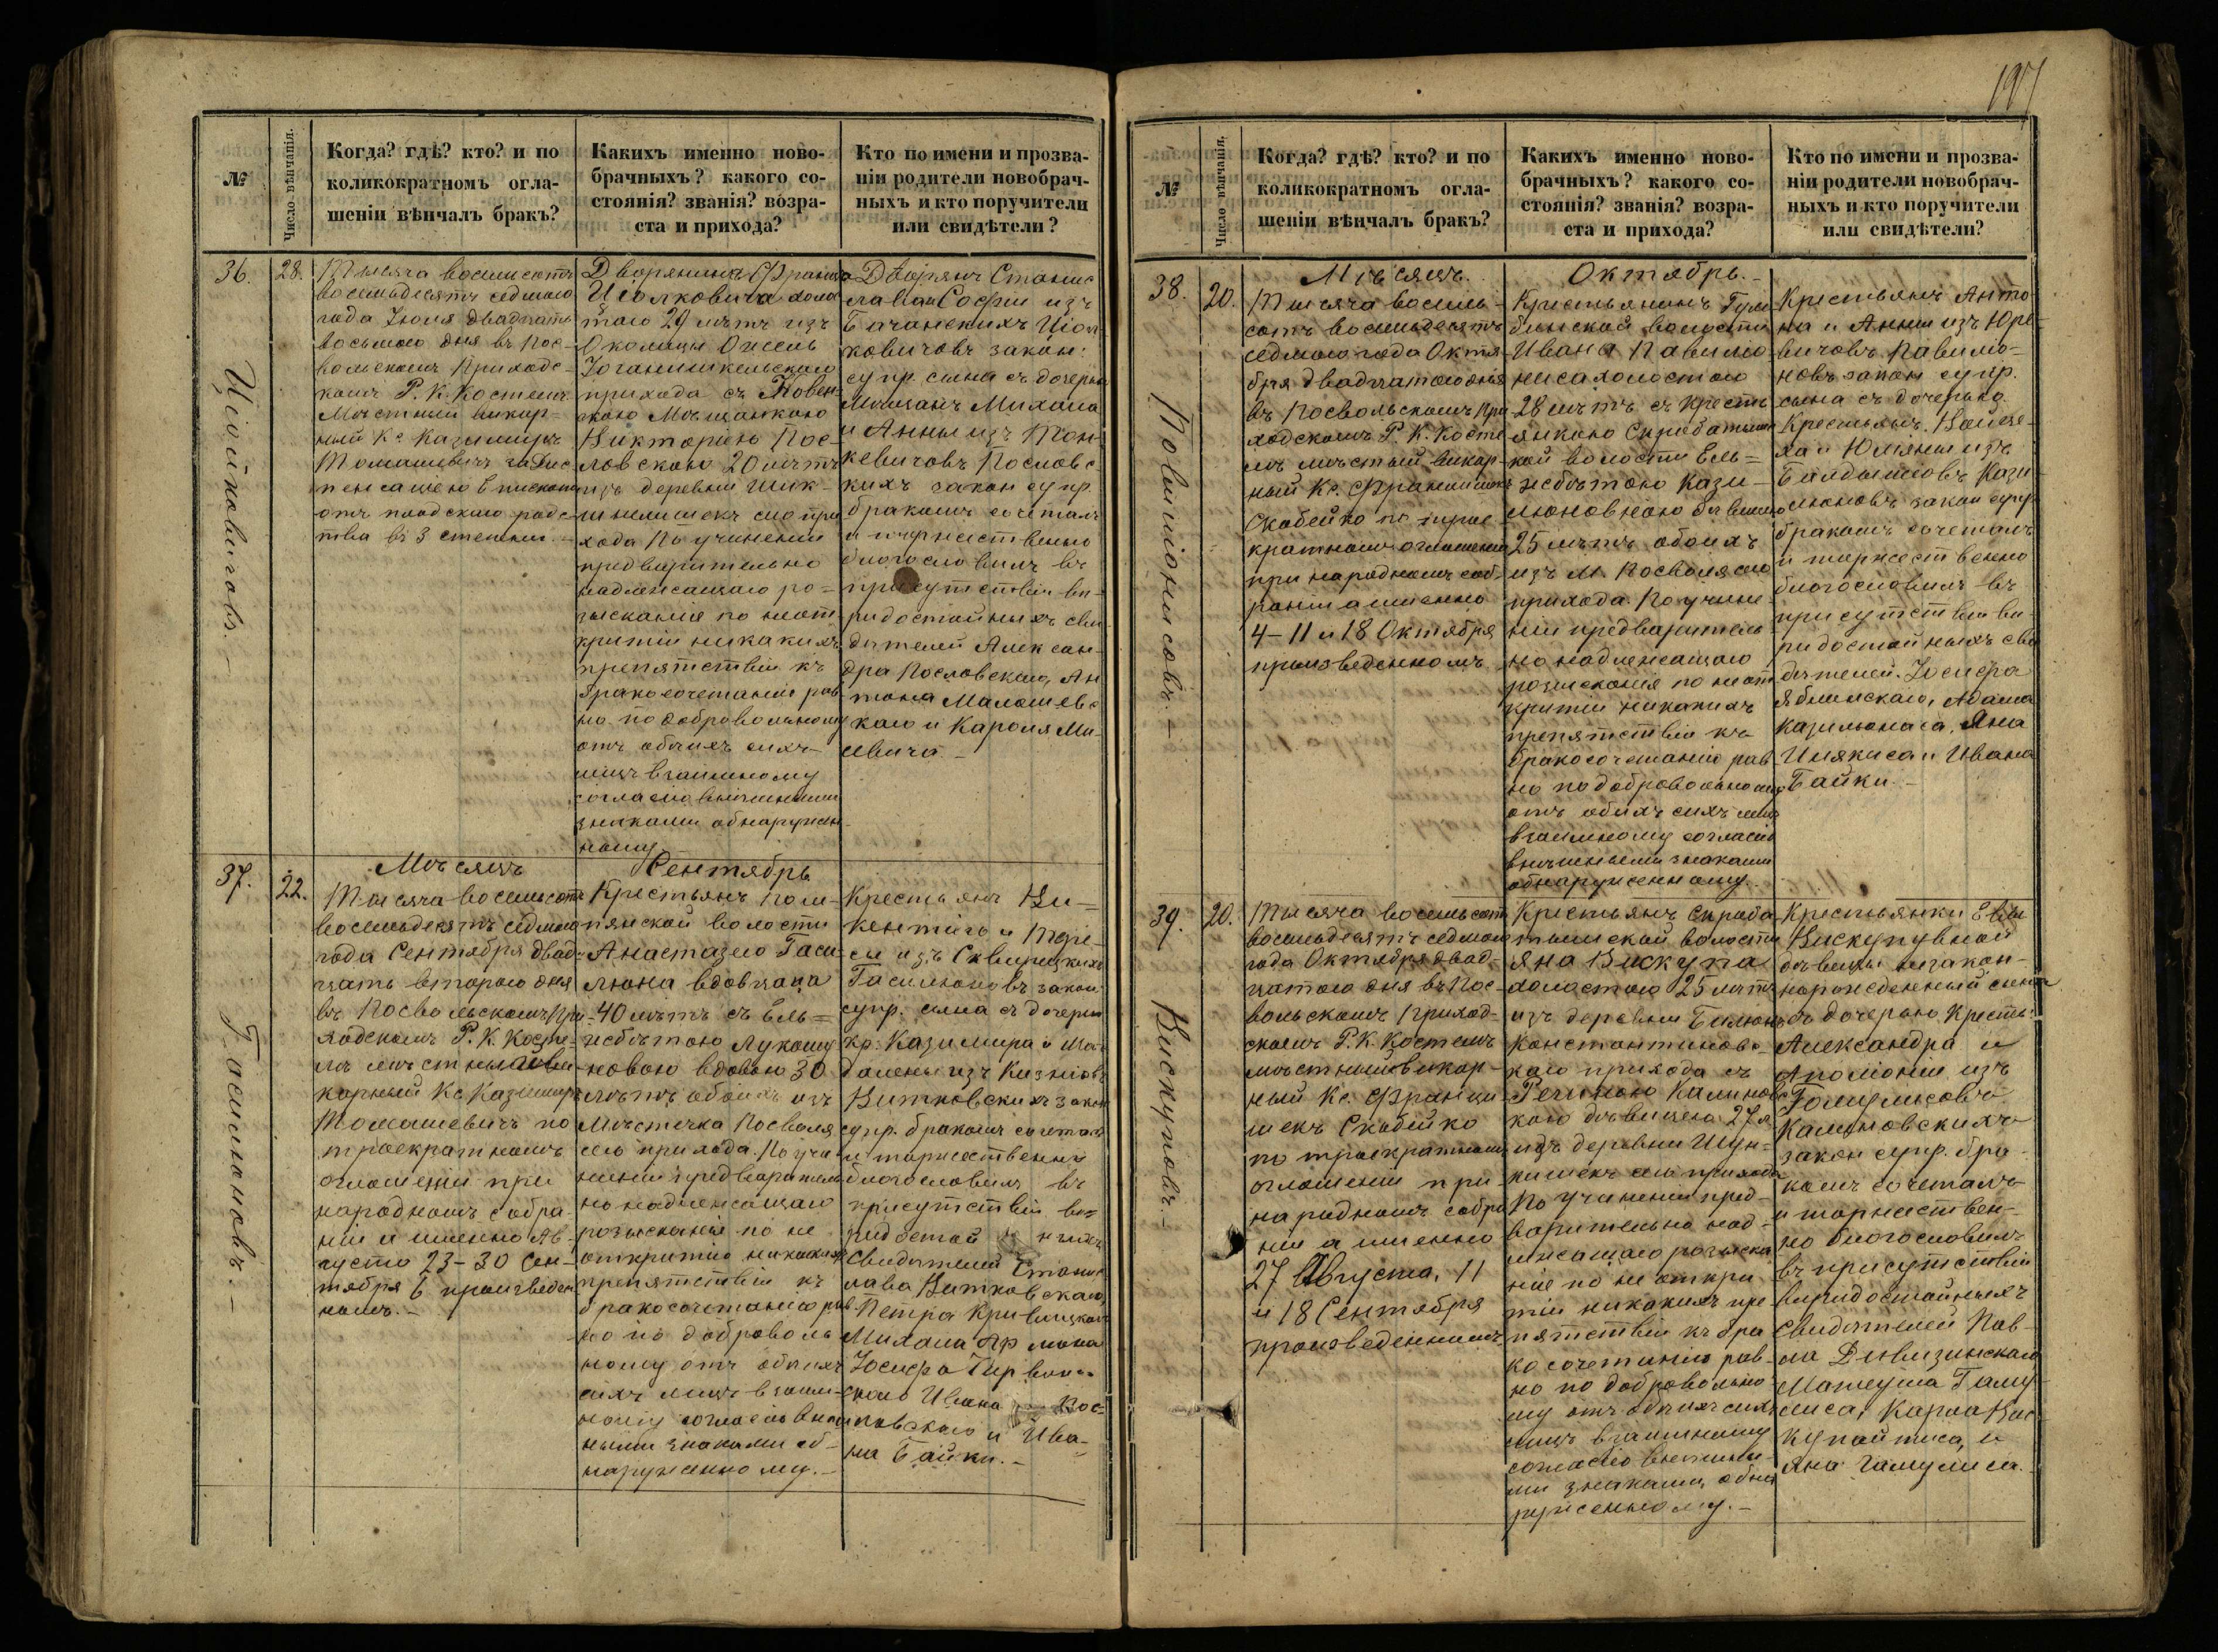 197
№
Число вѣнчанія.
Когда? гдѣ? кто? и по
коликократномъ огла-
шеніи вѣнчалъ бракъ?
Какихъ именно ново-
брачныхъ? какого со-
стоянія? званія? возра-
ста и прихода?
Кто по имени и прозва-
ніи родители новобрач-
ныхъ и кто поручители
или свидѣтели?
36.
28.
Тысяча восемьсотъ
восемьдесятъ седьмого
года Іюля двадцать
восьмого дня въ Пос-
вольскомъ Приходс-
комъ Р. К. Костелѣ
Мѣстный викар-
ный Кс Казимиръ
Томашевичъ
отъ
тва въ 3 степени.
Дворянина Франца
холос
таго 29 лѣтъ изъ
Околицы
Іоганишкельскаго
прихода съ Ковен-
скою Мѣщанкою
Викторіею Пос-
ловскою 20 лѣтъ
изъ деревни
сего при
хода По учиненіи
предварительно
надлежащаго ро-
зысканія по неот
крытіи никакихъ
препятствій къ
бракосочетанію рав
но по добровольному
отъ обоихъ сихъ
лицъ взаимному
согласію внѣшними
знаками обнаружен
ному.
Дворянъ Станис
лава и Софіи изъ
закон:
супр. сына съ дочерью
Мѣщанъ Михаила
и Анны изъ
Пословс
кихъ закон супр.
бракомъ сочеталъ
и торжественно
благословилъ въ
присутствіи вѣ-
ридостойныхъ сви
дѣтелей Алексан-
дра Пословскаго, Ан
тона Малашевс
каго и Кароля Ми-
цевича.
37.
22.
Мѣсяцъ
Сентябрь
Тысяча восемьсотъ
восемьдесятъ седьмого
года Сентября двад-
цать второго дня
въ Посвольскомъ При-
ходскомъ Р. К. Косте-
лѣ мѣстный ви
карный Кс Казимиръ
Томашевичъ по
троекратномъ
оглашеніи при
народномъ собра-
ніи а именно Ав-
густа 23-30 Сен-
тября 6 произведен
номъ.
Крестьянъ Пом-
пянской волости
Анастазего Гаси-
люна вдовцаго
40 лѣтъ съ Ель-
жбѣтою Лукашу
новою вдовою 30
лѣтъ обоихъ изъ
Мѣстечка Посволя
сего прихода. По учи
неніи предваритель
но надлежащаго
розысканія по не
открытію никакихъ
препятствій къ
бракосочетанію рав
но по доброволь
ному отъ обоихъ
сихъ лицъ взаим-
ному согласію внѣш
ными знаками об-
наруженному.
Крестьянъ Ви-
кентіго и Тере-
сы изъ Сквирецкихъ
Гасилюновъ закон.
супр. сына съ дочерью
кр. Казимира и Маг
далены изъ
Витковскихъ закон
супр. бракомъ сочеталъ
и торжественно
благословилъ въ
присутствіи вѣ-
ридостойныхъ
Свидѣтелей Станис
лава Витковскаго,
Петра Кривицкаго
Михаила
Іосифа
Ивана
и Ива-
на Байки.
Гасилюновъ.
№
Число вѣнчанія.
Когда? гдѣ? кто? и по
коликократномъ огла-
шеніи вѣнчалъ бракъ?
Какихъ именно ново-
брачныхъ? какого со-
стоянія? званія? возра-
ста и прихода?
Кто по имени и прозва-
ніи родители новобрач-
ныхъ и кто поручители
или свидѣтели?
38.
20.
Мѣсяцъ
Октябрь.
Тысяча восемь-
сотъ восемьдесятъ
седьмого года Октя
бря двадцатого дня
въ Посвольскомъ При
ходскомъ Р. К. Косте
лѣ мѣстный викар-
ный Кс. Францишекъ
Скабейко по трое
кратномъ оглашеніи
при народномъ соб-
раніи а именно
4-11 и 18 Октября
произведенномъ
Крестьянинъ Гум
бинской волости
Ивана Павилю
ниса холостого
28 лѣтъ съ Кресть
янкою Скрабатыш
кой волости Ель-
жбѣтою Кази-
люновною дѣвицею
25 лѣтъ обоихъ
изъ М. Посволя сего
прихода. По учине
ніи предваритель
но надлежащаго
розысканія по неот
крытіи никакихъ
препятствій къ
бракосочетанію рав
но по добровольному
отъ обоихъ сихъ лицъ
взаимному согласію
внѣшными знаками
обнаруженному.
Крестьянъ Анто
на и Анны изъ Юре-
вичовъ Павилю-
новъ закон супр.
сына съ дочерью
Крестьянъ. Войце-
ха и Юліяны изъ
Балдышовъ Кази
люновъ закон супр
бракомъ сочеталъ
и торжественно
благословилъ въ
присутствіи вѣ-
ридостойныхъ сви
дѣтелей. Іосифа
Яблинскаго, Адама
Казилюнаса, Яна
и Ивана
Байки.
39.
20.
Тысяча восемьсотъ
восемьдесятъ седьмого
года Октября двад-
цатого дня въ Пос-
вольскомъ Приход-
скомъ Р. К. Костелѣ
мѣстный викар-
ный Кс. Франци
шекъ Скабейко
по троекратномъ
оглашеніи при
народномъ собра
ніи а именно
27 Августа, 11
и 18 Сентября
произведенномъ
Крестьянъ Скраба-
тышской волости
Яна Вискупа
холостого 25 лѣтъ
изъ деревни
Константиновс-
каго прихода съ
Региною Калиновс
кою дѣвицею 27 л
изъ деревни
сего прихода
По учиненіи пред-
варительно над-
лежащаго розыска
ніе по не откры
тіи никакихъ пре
пятствій къ бра
косочетанію рав-
но по добровольно
му отъ обоихъ сихъ
лицъ взаимному
согласію внѣшны-
ми знаками, обна
руженному.
Крестьянки Евы
Вискупувной
дѣвицы незакон-
норожденный сынъ
съ дочерью Кресть.
Александра и
Аполоніи изъ
Гомулисовъ
Калиновскихъ
закон супр. бра-
комъ сочеталъ
и торжествен-
но благословилъ
въ присутствіи
вѣридостойныхъ
Свидѣтелей Пав-
ла
Матеуша Гаму
лиса, Карла Вис-
купайтиса, и
Яна Гамулиса.
Вискуповъ.